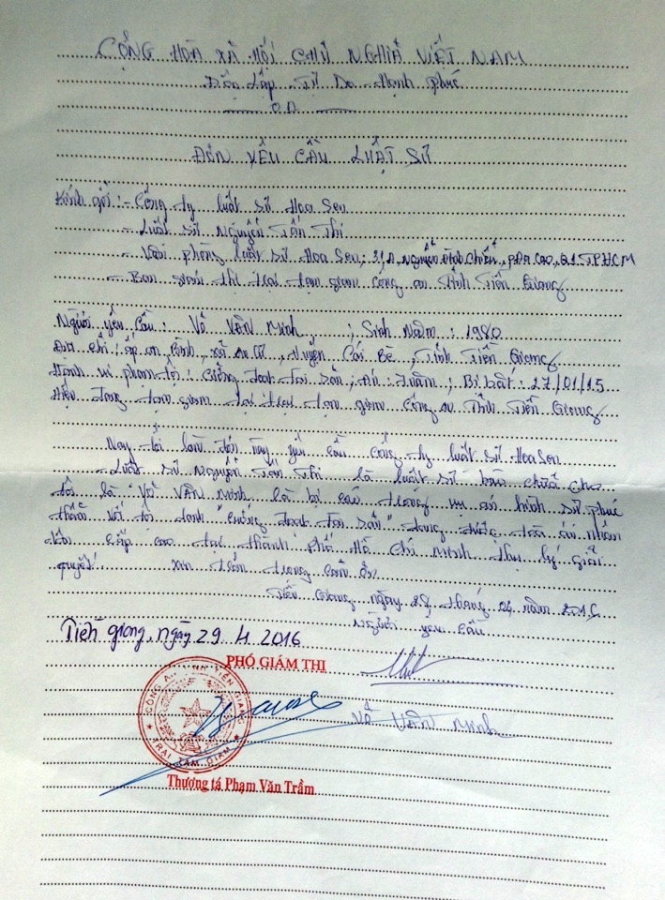 CỘNG HÒA XÃ HỘI CHỦ NGHĨA VIỆT NAM
Độc Lập Tự Do Hạnh Phúc
ĐƠN YÊU CẦU LUẬT SƯ
Kính gởi: - Công ty luật sư Hoa Sen
- Luật sư Nguyễn Tấn Thi
- Văn phòng luật sư Hoa Sen: Nguyễn Đình Chiểu, P. Đa Cao, Q1 TPHCM
- Ban giám thị trại tạm giam công an Tỉnh Tiền Giang
Người yêu cầu: Võ Văn Minh; Sinh Năm: 1980
Địa chỉ: ấp An Bình, xã An Cư, Huyện Cái Bè, Tỉnh Tiền Giang
Hành vi phạm tội: Cưỡng đoạt tài sản; Án: 3 năm; Bị bắt: 27/01/15
Hiện đang tạm giam tại trại tạm giam công an Tỉnh Tiền Giang
Nay tôi làm đơn này yêu cầu công ty luật sư Hoa Sen
- Luật sư Nguyễn Tấn Thi là luật sư bào chữa cho
tôi là "Võ Văn Minh là bị cáo trong vụ án hình sự phúc
thẩm với tội danh "cưỡng đoạt tài sản" đang được tòa án nhân
dân cấp cao tại thành phố Hồ Chí Minh thụ lý giải
quyết. xin trân trọng cảm ơn
Tiền Giang ngày tháng 04 năm 2016
Người yêu cầu
Tiền giang, ngày 29.4.2016
PHÓ GIÁM THỊ
CÔNG AN TỈNH TIỀN GIANG
TRẠI TẠM GIAM
Võ Văn Minh
Thượng tá Phạm Văn Trầm